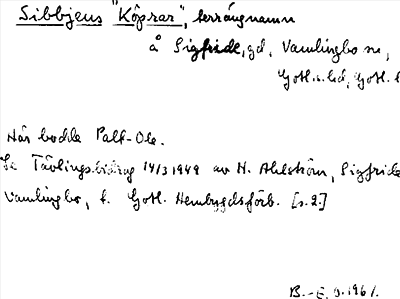 Sibbjens "Köprar", terrängnamn
å Sigfride, gd, Vamlingbo sn,
Gotl. s. hd, Gotl. l
Här bodde Palk-Ole.
Se Tävlingsbidrag 14/3 1949 av H. Ahlström, Sigfride
Vamlingbo, t. Gotl. Hembygdsförb. [s. 2.]
B.-E. O. 1961.